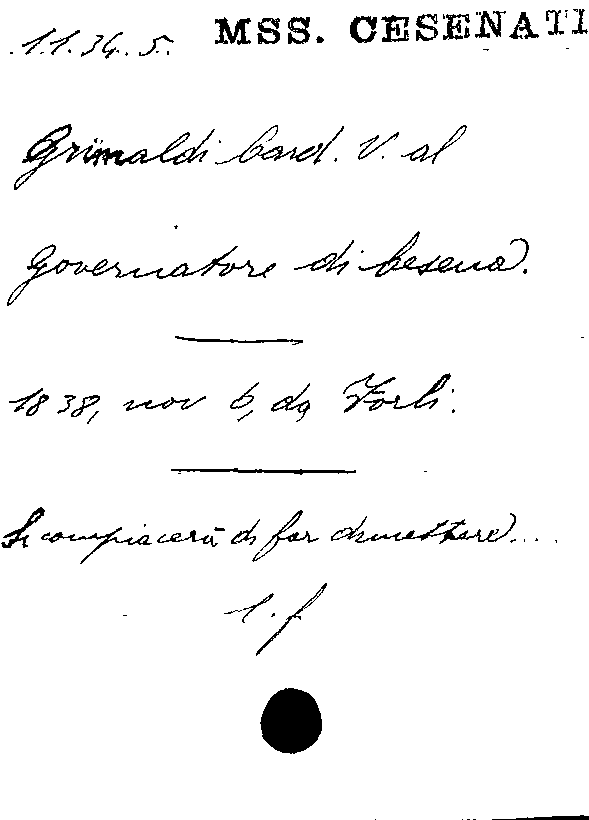 11.34.5. MSS. CESENATI
Grimaldi Card. V. al
Governatore di Cesena.
1838, nov 6, da Forlì.
Si compiacerà di far dimettere....
1. f